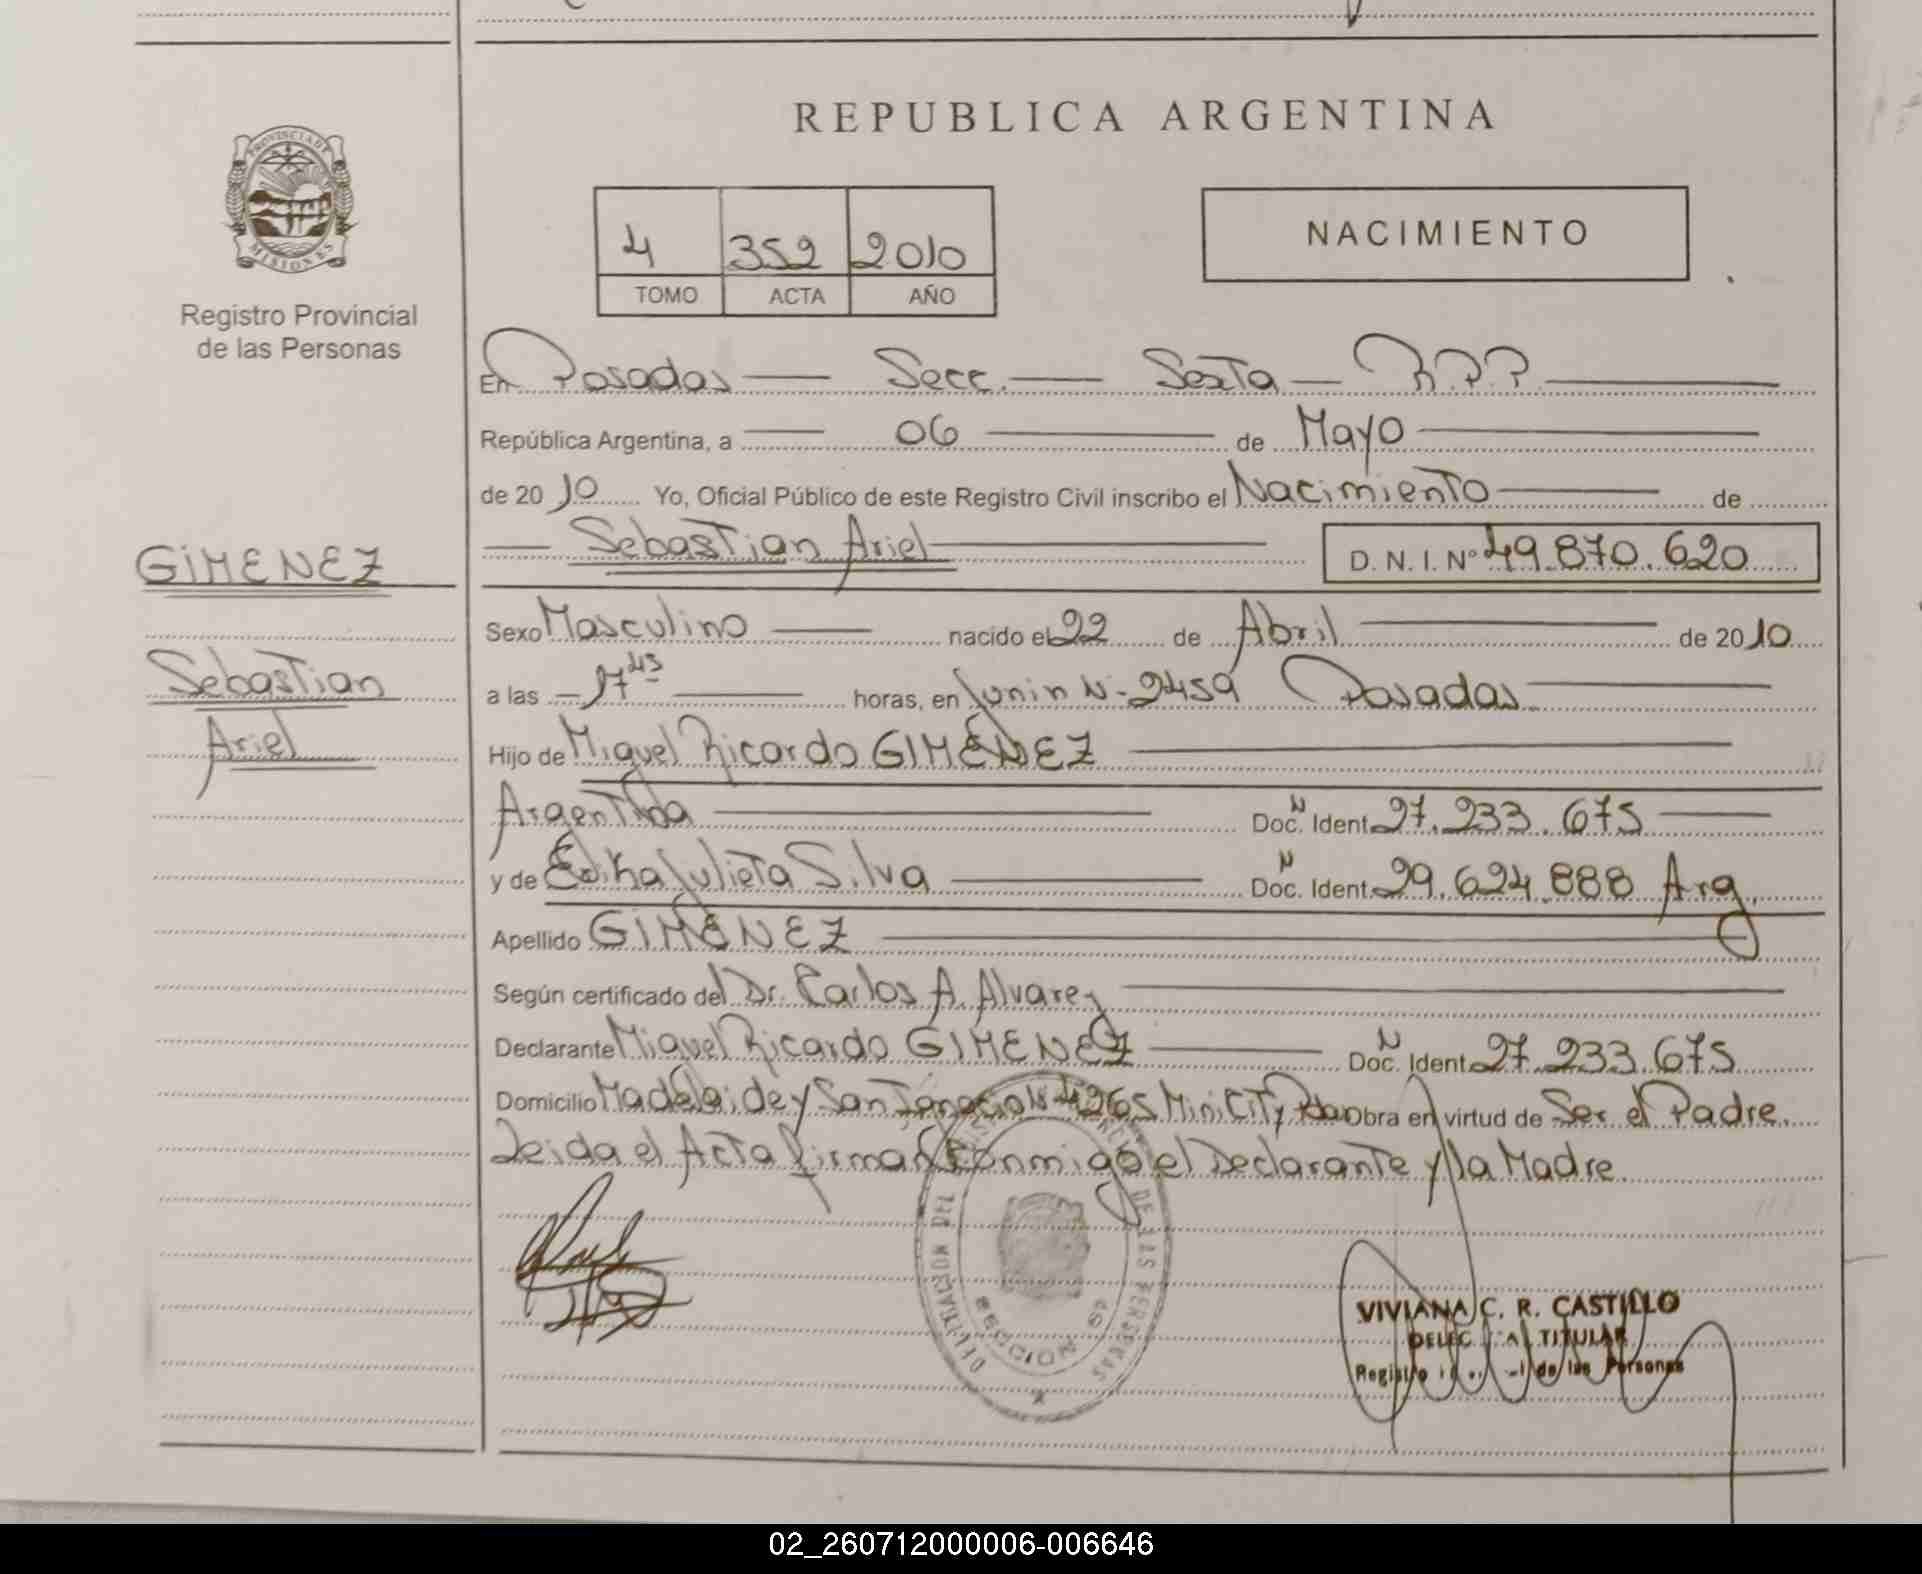 REPUBLICA ARGENTINA
PROVINCIA DE
MISIONES
Registro Provincial
de las Personas
4 352 2010
TOMO ACTA AÑO
NACIMIENTO
En Posadas — Secc. — Sexta — R.P.P.
República Argentina, a — 06 — de Mayo
de 20 10 Yo, Oficial Público de este Registro Civil inscribo el Nacimiento — de
— Sebastian Ariel — D. N. I. Nº 49.870.620
GIMENEZ
Sebastian
Ariel
Sexo Masculino — nacido el 22 de Abril — de 2010
a las — 17 43 — horas, en Junin N- 2459 Posadas —
Hijo de Miguel Ricardo GIMENEZ —
Argentina — Doc. N Ident. 27.233.675 —
y de Julieta Silva — Doc. N Ident. 29.624.888 Arg.
Apellido GIMENEZ —
Según certificado del Dr. Carlos A. Alvarez —
Declarante Miguel Ricardo GIMENEZ — Doc. N Ident. 27.233.675
Domicilio y San 4265 Mini City Obra en virtud de Ser el Padre.
Leida el Acta firman Conmigo el Declarante y la Madre.
DE LAS PERSONAS
SECCION 6º
VIVIANA C. R. CASTILLO
TITULAR
de las Personas
02_260712000006-006646